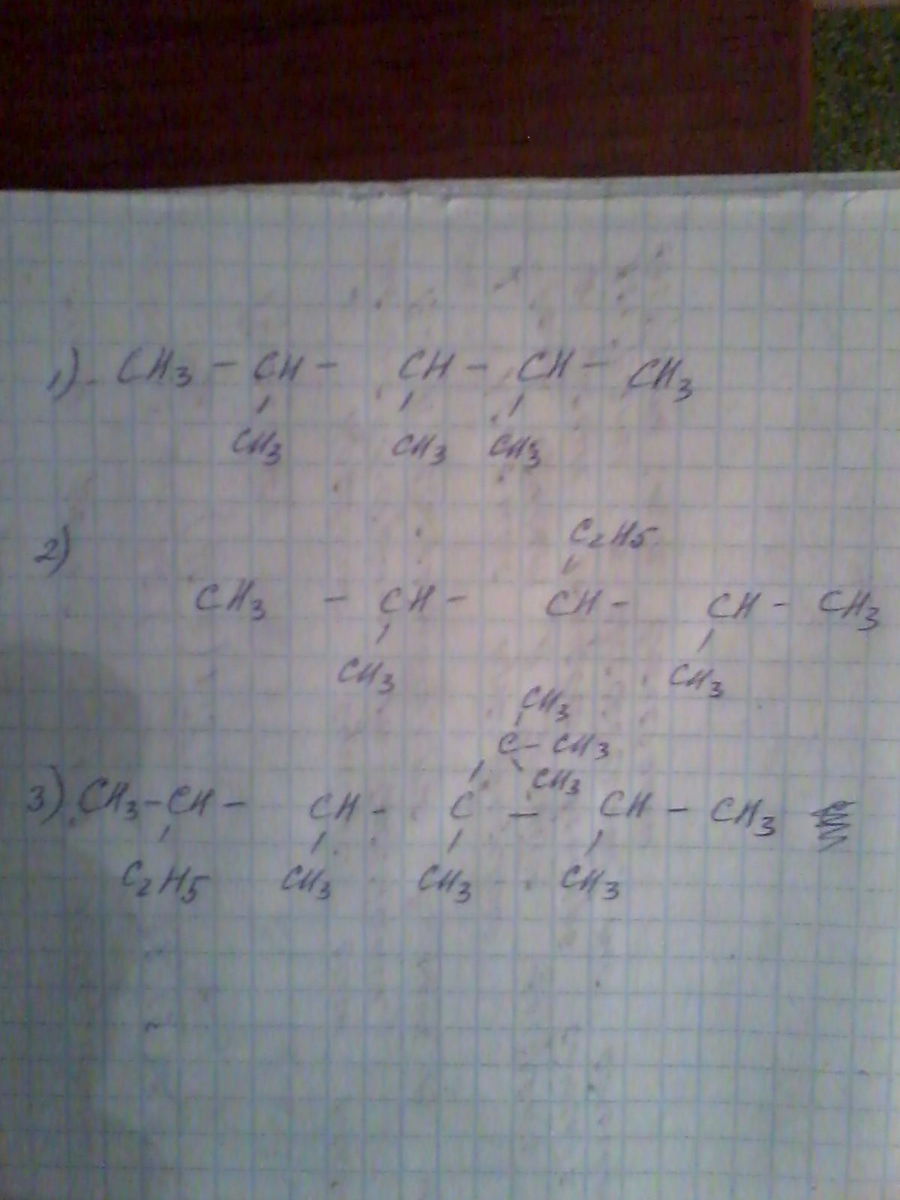 1). CH3 - CH - CH - CH - CH3
CH3 CH3 CH3
2)
C2H5
CH3 - CH - CH - CH - CH3
CH3 CH3
CH3
C - CH3
CH3
3) CH3 - CH - CH - C - CH - CH3
C2H5 CH3 CH3 CH3